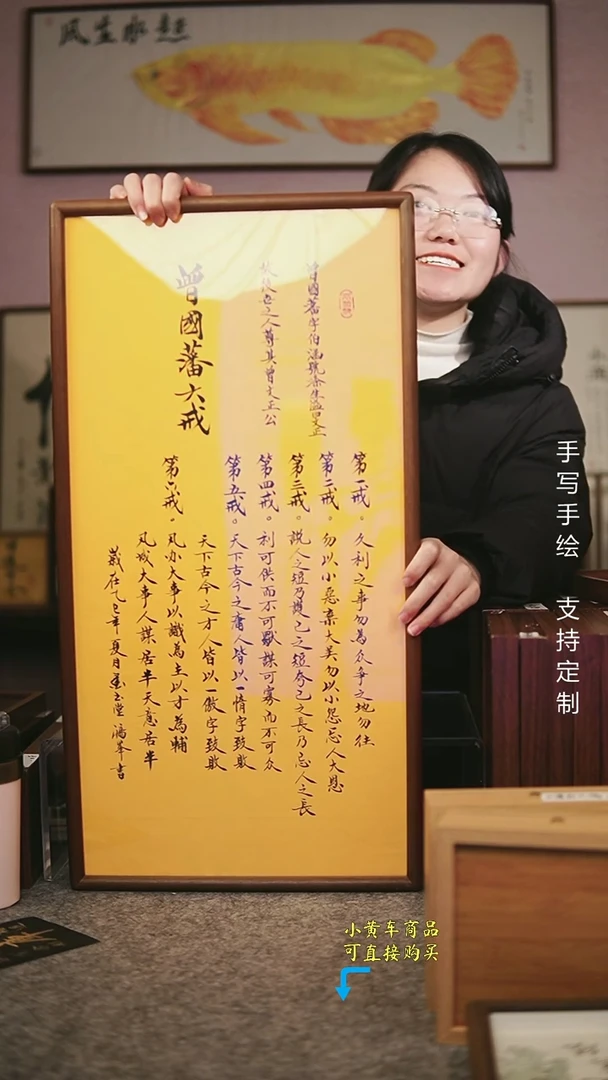 風生水起
曾國藩字伯涵號滌生謚文正
故後世之人尊其曾文正公
曾國藩六戒
第一戒。久利之事勿為眾爭之地勿往
第二戒。勿以小惡棄大美勿以小怨忘人大恩
第三戒。說人之短乃護己之短夸己之長乃忌人之長
第四戒。利可供而不可獨謀可寡而不可眾
第五戒。天下古今之庸人皆以一惰字致敗
天下古今之才人皆以一傲字致敗
第六戒。凡办大事以識為主以才為輔
凡成大事人謀居半天意居半
歲在乙巳年夏月
手写手绘 支持定制
小黄车商品
可直接购买